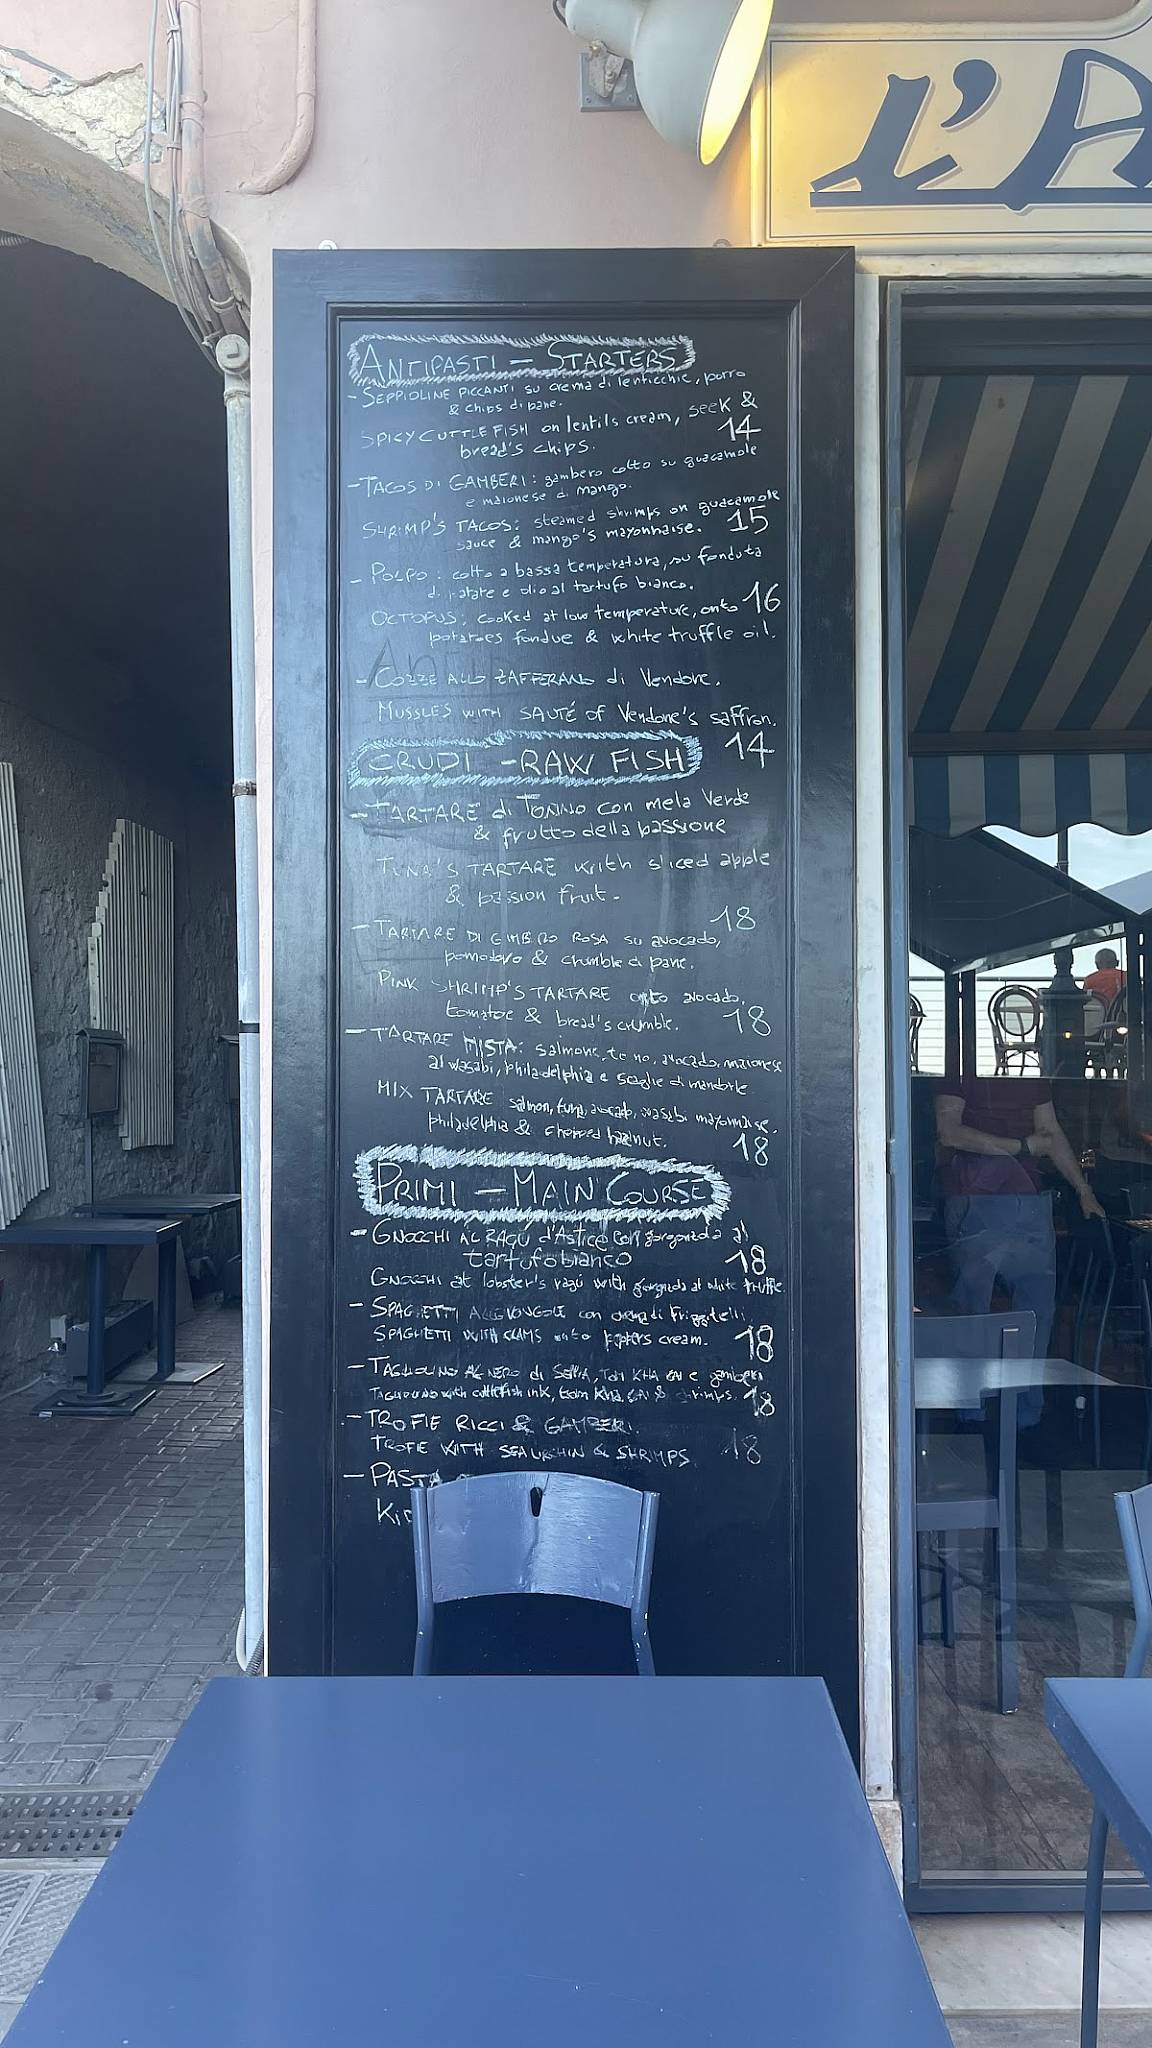 L'A
ANTIPASTI - STARTERS
- SEPPIOLINE PICCANTI su crema di lenticchie, porro
& chips di pane.
SPICY CUTTLEFISH on lentils cream, seek &
bread's chips. 14
- TACOS DI GAMBERI: gambero cotto su guacamole
e maionese di mango.
SHRIMP'S TACOS: steamed shrimps on guacamole
sauce & mango's mayonnaise. 15
- POLPO: cotto a bassa temperatura, su fonduta
di patate e olio al tartufo bianco.
OCTOPUS: cooked at low temperature, onto 16
potatoes fondue & white truffle oil.
- COZZE ALLO ZAFFERANO di Vendone.
MUSSLES WITH SAUTÉ of Vendone's saffron.
14
CRUDI - RAW FISH
- TARTARE di TONNO con mela verde
& frutto della passione
TUNA'S TARTARE with sliced apple
& passion fruit.
18
- TARTARE DI GAMBERO ROSA su avocado,
pomodoro & crumble di pane.
PINK SHRIMP'S TARTARE onto avocado,
tomatoe & bread's crumble. 18
- TARTARE MISTA: salmone, avocado, maionese
al wasabi, philadelphia e scaglie di mandorle
MIX TARTARE salmon, tuna, avocado, wasabi mayonnaise,
philadelphia & chopped
18
PRIMI - MAIN COURSE
- GNOCCHI AL RAGÚ d'Astice con gorgonzola al
tartufo bianco 18
GNOCCHI at lobster's ragú with at white truffle.
- SPAGHETTI ALLE VONGOLE con crema di
SPAGHETTI WITH CLAMS onto cream. 18
- TAGLIOLINO AL NERO di Seppia, TOM KHA GAI e gamberi
TAGLIOLINO with cuttlefish ink, tom kha GAI & shrimps. 18
- TROFIE RICCI & GAMBERI.
TROFIE WITH SEAURCHIN & SHRIMPS 18
- PASTA